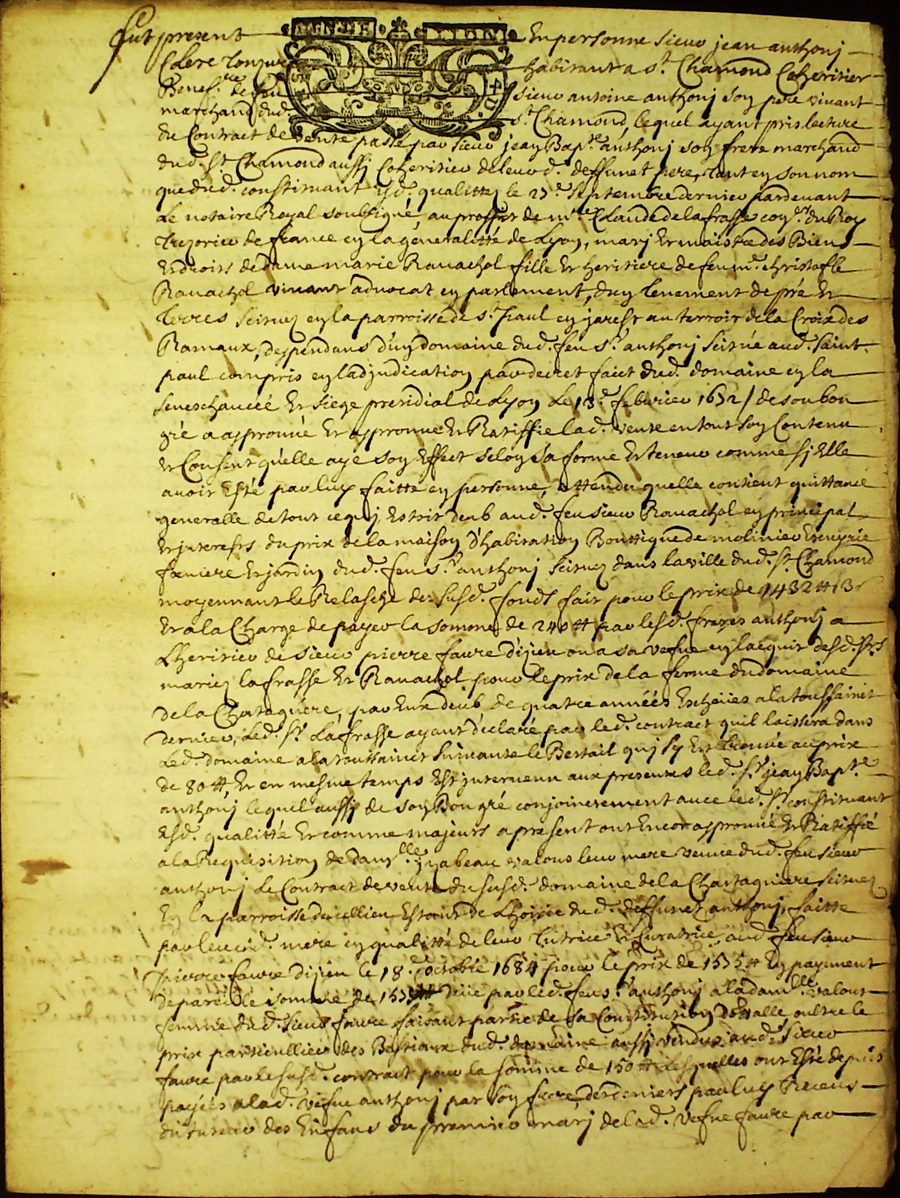 GNALITE LION
fut present En personne sieur jean anthonj
Clerc Tonsuré habitant a st. Chamond Coheritier
Benef.re de feu sieur antoine anthonj son pere vivant
marchand dud. st. Chamond, lequel ayant pris lecture
du Contract de vente passé par sieur jean Bapte. anthonj son frere marchand
dud. st. Chamond aussj Coheritier de leur d. deffunct pere, tant en son nom
que dud. constituant esd. qualittez le 27e. septembre dernier pardevant
Le notaire Royal soubsigné, au proffit de mre. Claude de la frasse coner. du Roy
Trezorier de france en la generalitté de Lyon, marj Et maistre des Biens
Et droits de dame marie Ravachol fille Et heritiere de feu mr. christofle
Ravachol vivant advocat en parlement, d'un Tenement de pré Et
Terres scituez en la parroisse de st. paul en jarest au terroir de la Croix des
Rameaux, despendans d'un domaine dud. feu sr. anthonj scitué aud. saint
paul compris en l'adjudication par decret faict dud. domaine en la
seneschaucée Et siege presidial de Lyon Le 13e. febvrier 1652 / de son bon
gré a approuvé Et approuve Et Ratiffie lad. vente en tout son Contenu
Et Consent qu'elle aye son Effect selon sa forme Et teneur comme sj Elle
avoit Esté par luy faitte en personne, attendu quelle contient quittance
generalle de tout ce quj Estoit deub aud. feu sieur Ravachol en principal
Et interests du prix de la maison d'habitation Bouttique de molinier
Et jardin dud. feu sr. anthonj scituez dans la ville dud. st. Chamond
moyennant le Relasche des susd. fonds fait pour le prix de 1432 # 13 s
Et a la Charge de payer la somme de 240 # par lesd. freres anthonj a
L'heritier de sieur pierre faure dijeu ou a sa vefve en l'acquit desd. srs.
mariez la frasse Et Ravachol pour le prix de la ferme du domaine
De la Chataguere, par Eux deub de quatre années Escheües a la toussaint
dernier, Led. sr. La frasse ayant declaré par led. contract qu'il laissera dans
Led. domaine a la toussaint suivante le Bestail quj sy Est treuvé au prix
de 80 #, Et en mesme temps Est intervenu aux presentes led. sr. jean Bapte.
anthonj lequel aussj de son Bon gré conjoinctement avec led. sr. constituant
Esd. qualitté Et comme majeurs a present ont Encor approuvé Et Ratiffié
a la Requisition de damlle. ysabeau valous leur mere veuve dud. feu sieur
anthonj Le Contract de vente du susd. domaine de la Chattaguiere scituez
En la parroisse de cellieu Estant de L'hoirie dud. deffunct anthonj, faitte
par leurd. mere en qualitté de leur tutrice Et Curatrice, aud. feu sieur
pierre faure dijeu le 18e. octobre 1684 pour le prix de 1535 # En payement
De pareille somme de 1535 # deüe par led. feu sr. anthonj a la damlle. valous
femme dud. sieur faure faisant partie de sa Constitution Dotalle, outre le
prix particullier des Bestiaux dud. domaine aussj vendus aud. sieur
faure par le susd. contract pour la somme de 150 # lesquelles ont Esté depuis
payées a lad. vefve anthonj par son frere, des deniers par luy Receus
du tuteur des Enfans du premier marj de lad. vefve faure par